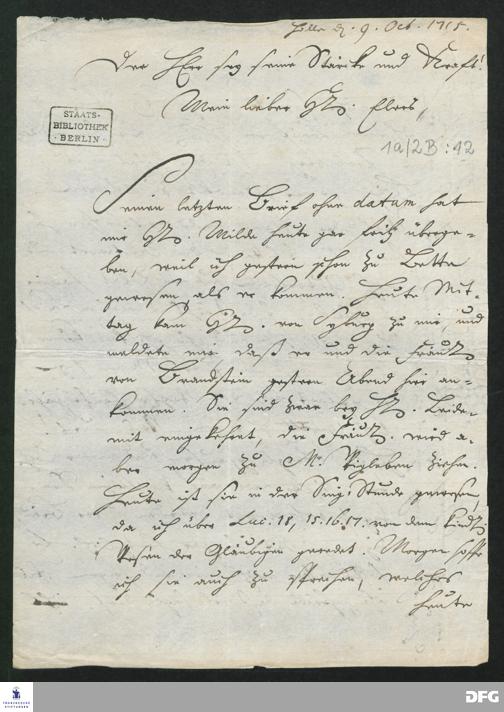 Halle d. 9. Oct. 1715.
Der HErr sey seine Stärcke und Krafft!
Mein lieber H. Elers,
STAATS-
BIBLIOTHEK
· BERLIN ·
1a/2B : 42
Seinen letzten Brief ohne datum hat
mir H. Milde heute gar früh überge-
ben, weil ich gestern schon zu Bette
gewesen als er kommen. Heute Mit-
tag kam H. von zu mir, und
meldete mir daß er und die Fraul.
von Brandstein gestern Abend hier an-
kommen. Sie sind zwar bey H.
mit eingekehret, die Fräul. wird a-
ber morgen zu Mr. ziehen.
Heute ist sie in der Sing-Stunde gewesen,
da ich über Luc. 18, 15.16.17. von dem
Wesen der Gläubigen geredet. Morgen hoffe
ich sie auch zu sprechen, welches
heute
FRANCKESCHE
STIFTUNGEN
DFG